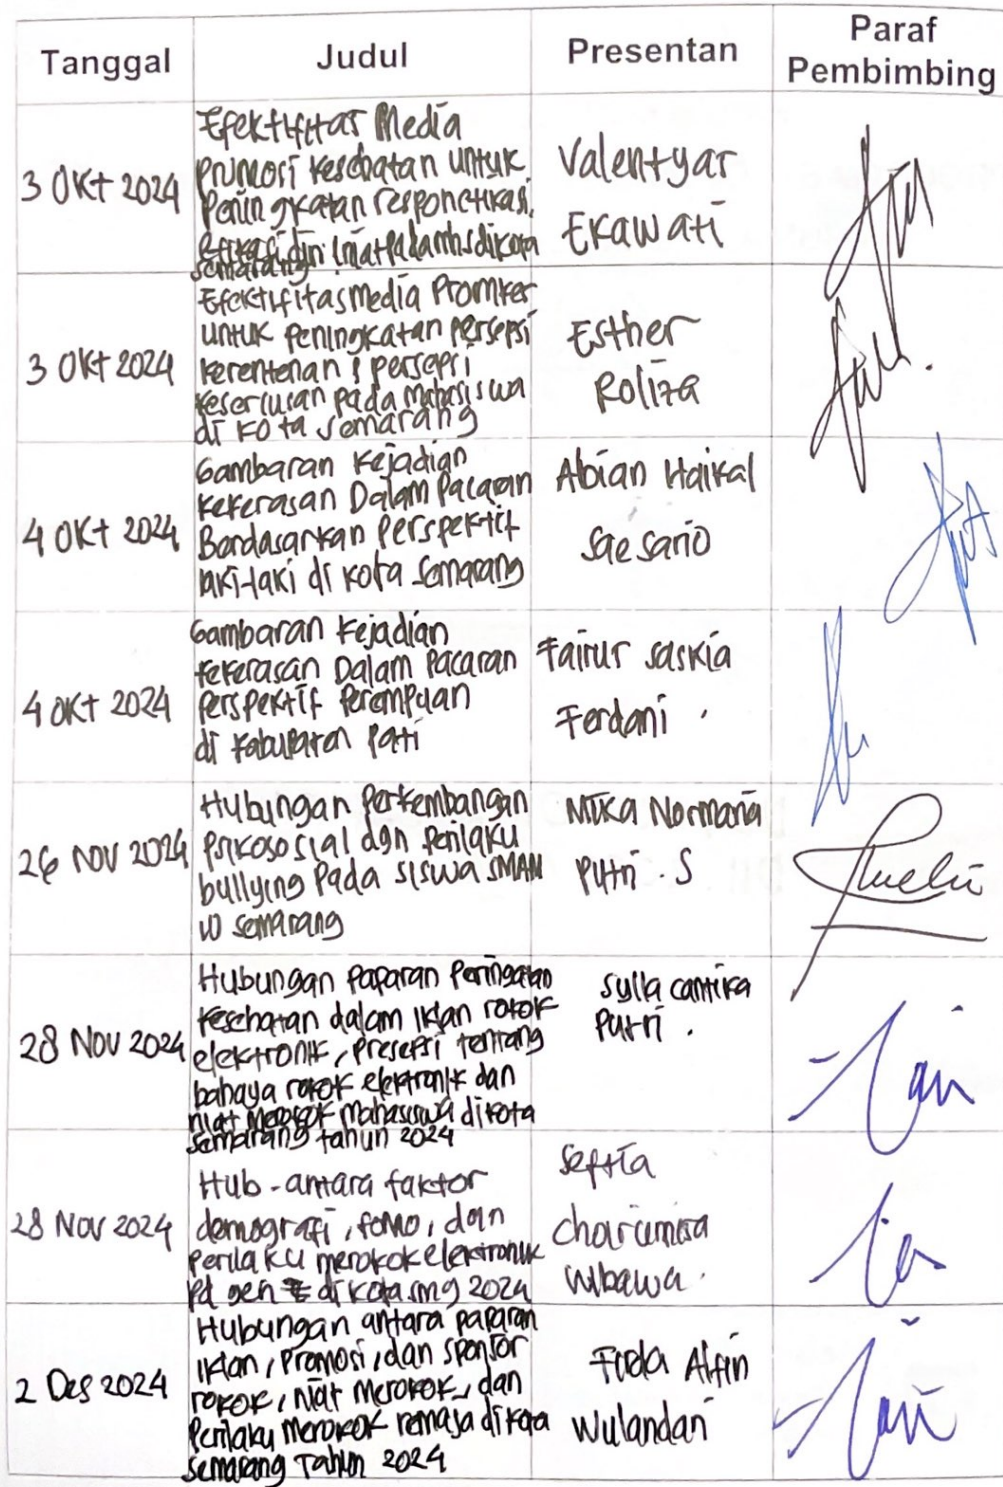 Tanggal
Judul
Presentan
Paraf
Pembimbing
3 Okt 2024
Efektifitas Media
Promosi Kesehatan untuk
Peningkatan
efikasi diri
semarang
Valentyar
Ekawati
3 Okt 2024
Efektifitas Media Promkes
untuk Peningkatan persepsi
kerentenan & persepsi
keseriusan pada Mahasiswa
di Kota Semarang
Esther
Roliza
4 Okt 2024
Gambaran Kejadian
Kekerasan Dalam Pacaran
Berdasarkan Perspektif
laki-laki di kota Semarang
Abian Haikal
Saesario
4 Okt 2024
Gambaran Kejadian
Kekerasan Dalam Pacaran
Perspektif Perempuan
di Kabupaten Pati
Fairur Saskia
Ferdani .
26 Nov 2024
Hubungan Perkembangan
Psikososial dgn Perilaku
bullying Pada siswa SMAN
10 Semarang
Mika Normana
Putri . S
28 Nov 2024
Hubungan Paparan Peringatan
Kesehatan dalam Iklan rokok
elektronik, Presepsi tentang
bahaya rokok elektronik dan
niat Merokok Mahasiswa di kota
Semarang tahun 2024
Sylla Cantika
Putri .
28 Nov 2024
Hub - antara faktor
demografi, fomo, dan
Perilaku merokok elektronik
Pd gen Z di kota smg 2024
Septia
Wibawa .
2 Des 2024
Hubungan antara paparan
Iklan, Promosi, dan sponsor
rokok, niat Merokok, dan
Perilaku Merokok remaja di kota
Semarang Tahun 2024
Alfin
Wulandari